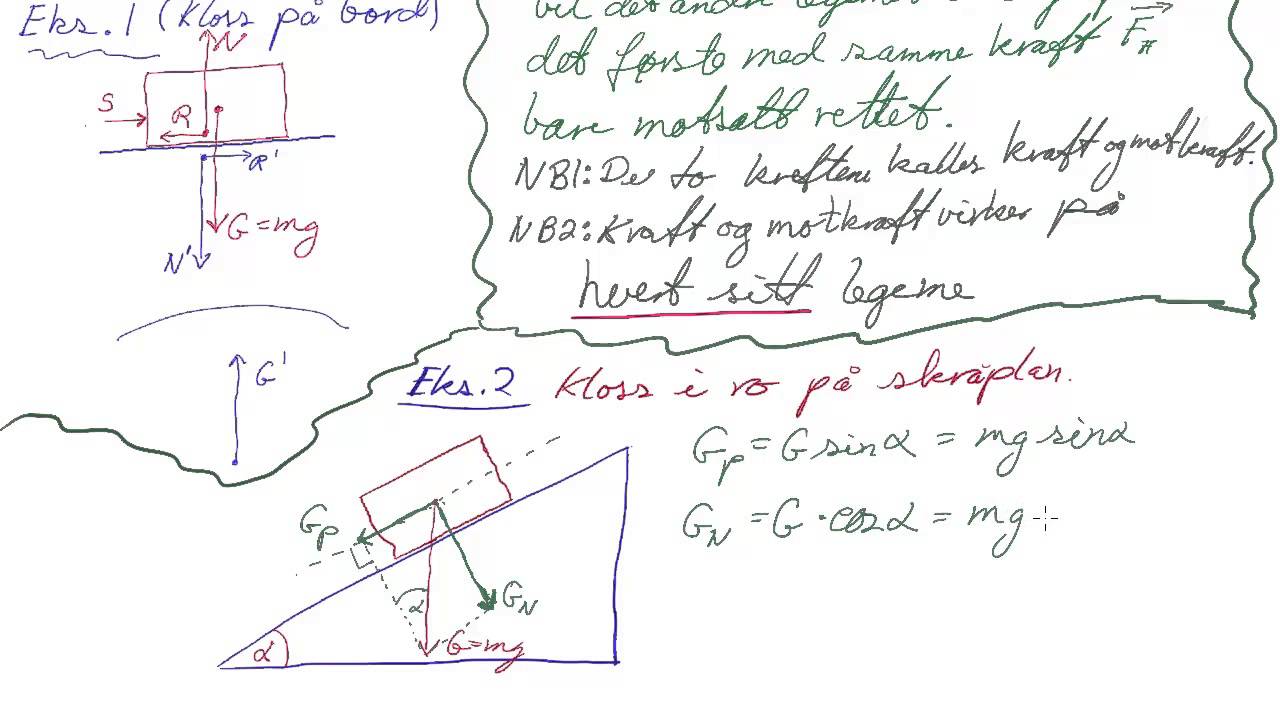 Eks. 1 (Kloss på bord)
N
S
R
R'
G = mg
N'
G'
vil det andre
det første med samme kraft F
bare motsatt rettet.
NB1: De to kreftene kalles kraft og motkraft.
NB2: Kraft og motkraft virker på
hvert sitt legeme
Eks. 2 Kloss i ro på skråplan.
G_p = G sin α = mg sin α
G_N = G · cos α = mg
G_p
α
G_N
G = mg
α